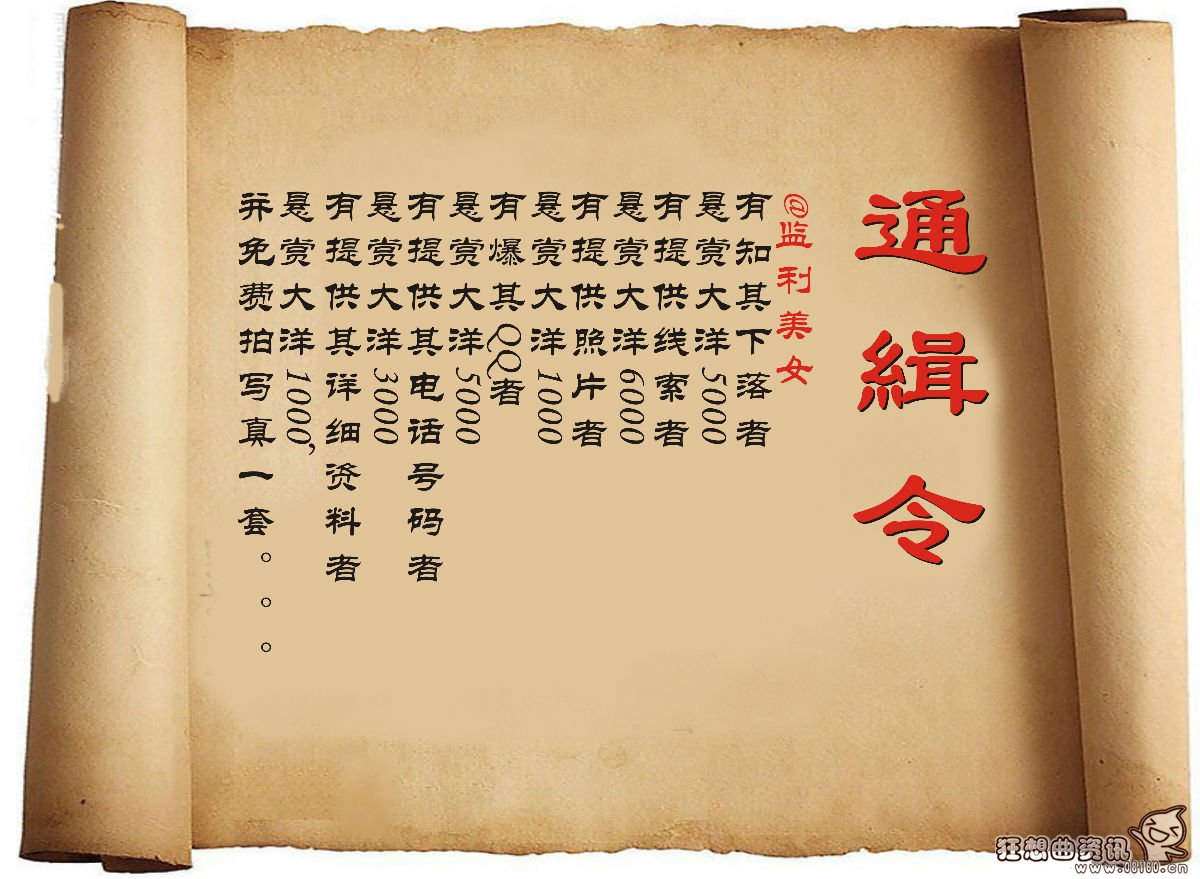 通緝令
@监利美女
有知其下落者
悬赏大洋5000
有提供线索者
悬赏大洋6000
有提供照片者
悬赏大洋1000
有爆其QQ者
悬赏大洋5000
有提供其电话号码者
悬赏大洋3000
有提供其详细资料者
悬赏大洋1000,
并免费拍写真一套。。。
狂想曲资讯
www.08160.cn